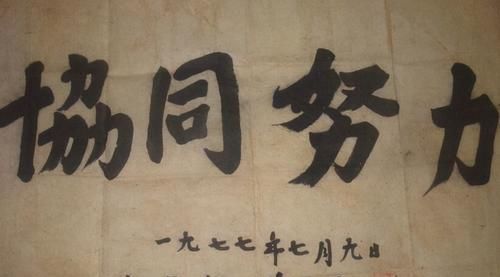 協同努力
一九七七年七月九日